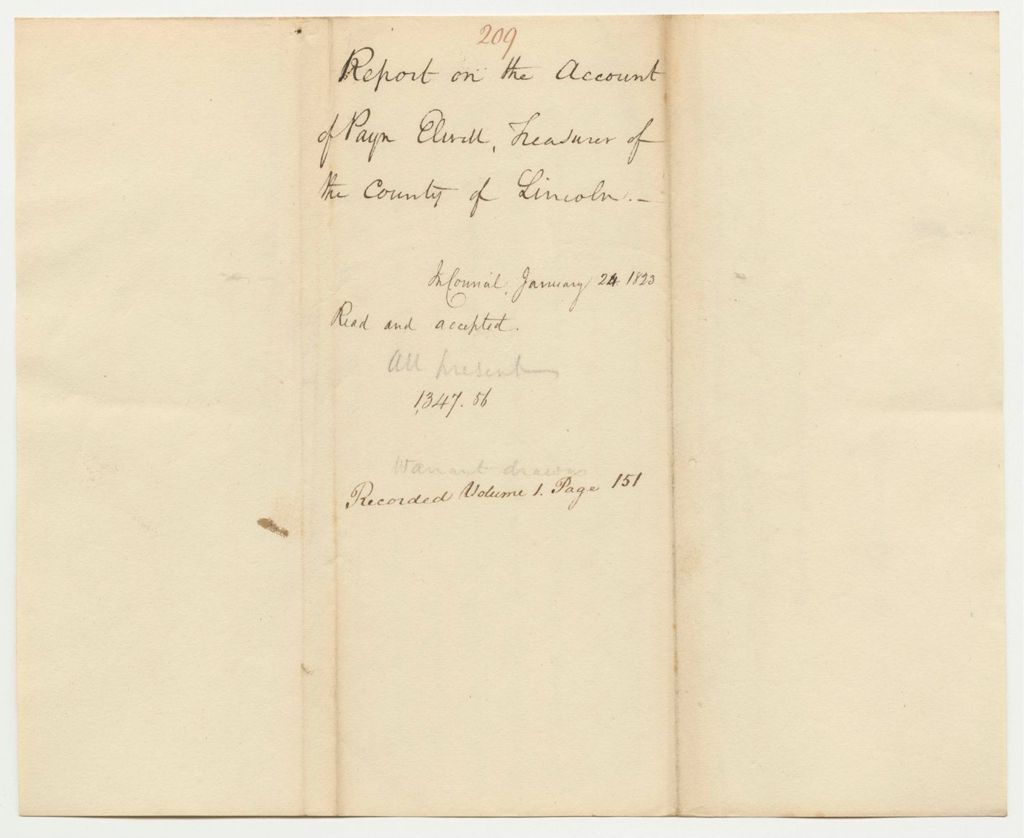 209
Report on the Account
of Payn Elwell, Treasurer of
the County of Lincoln.-
In Council, January 24 1823
Read and accepted.
All present
1,347.56
Warrant drawn
Recorded Volume 1. Page 151